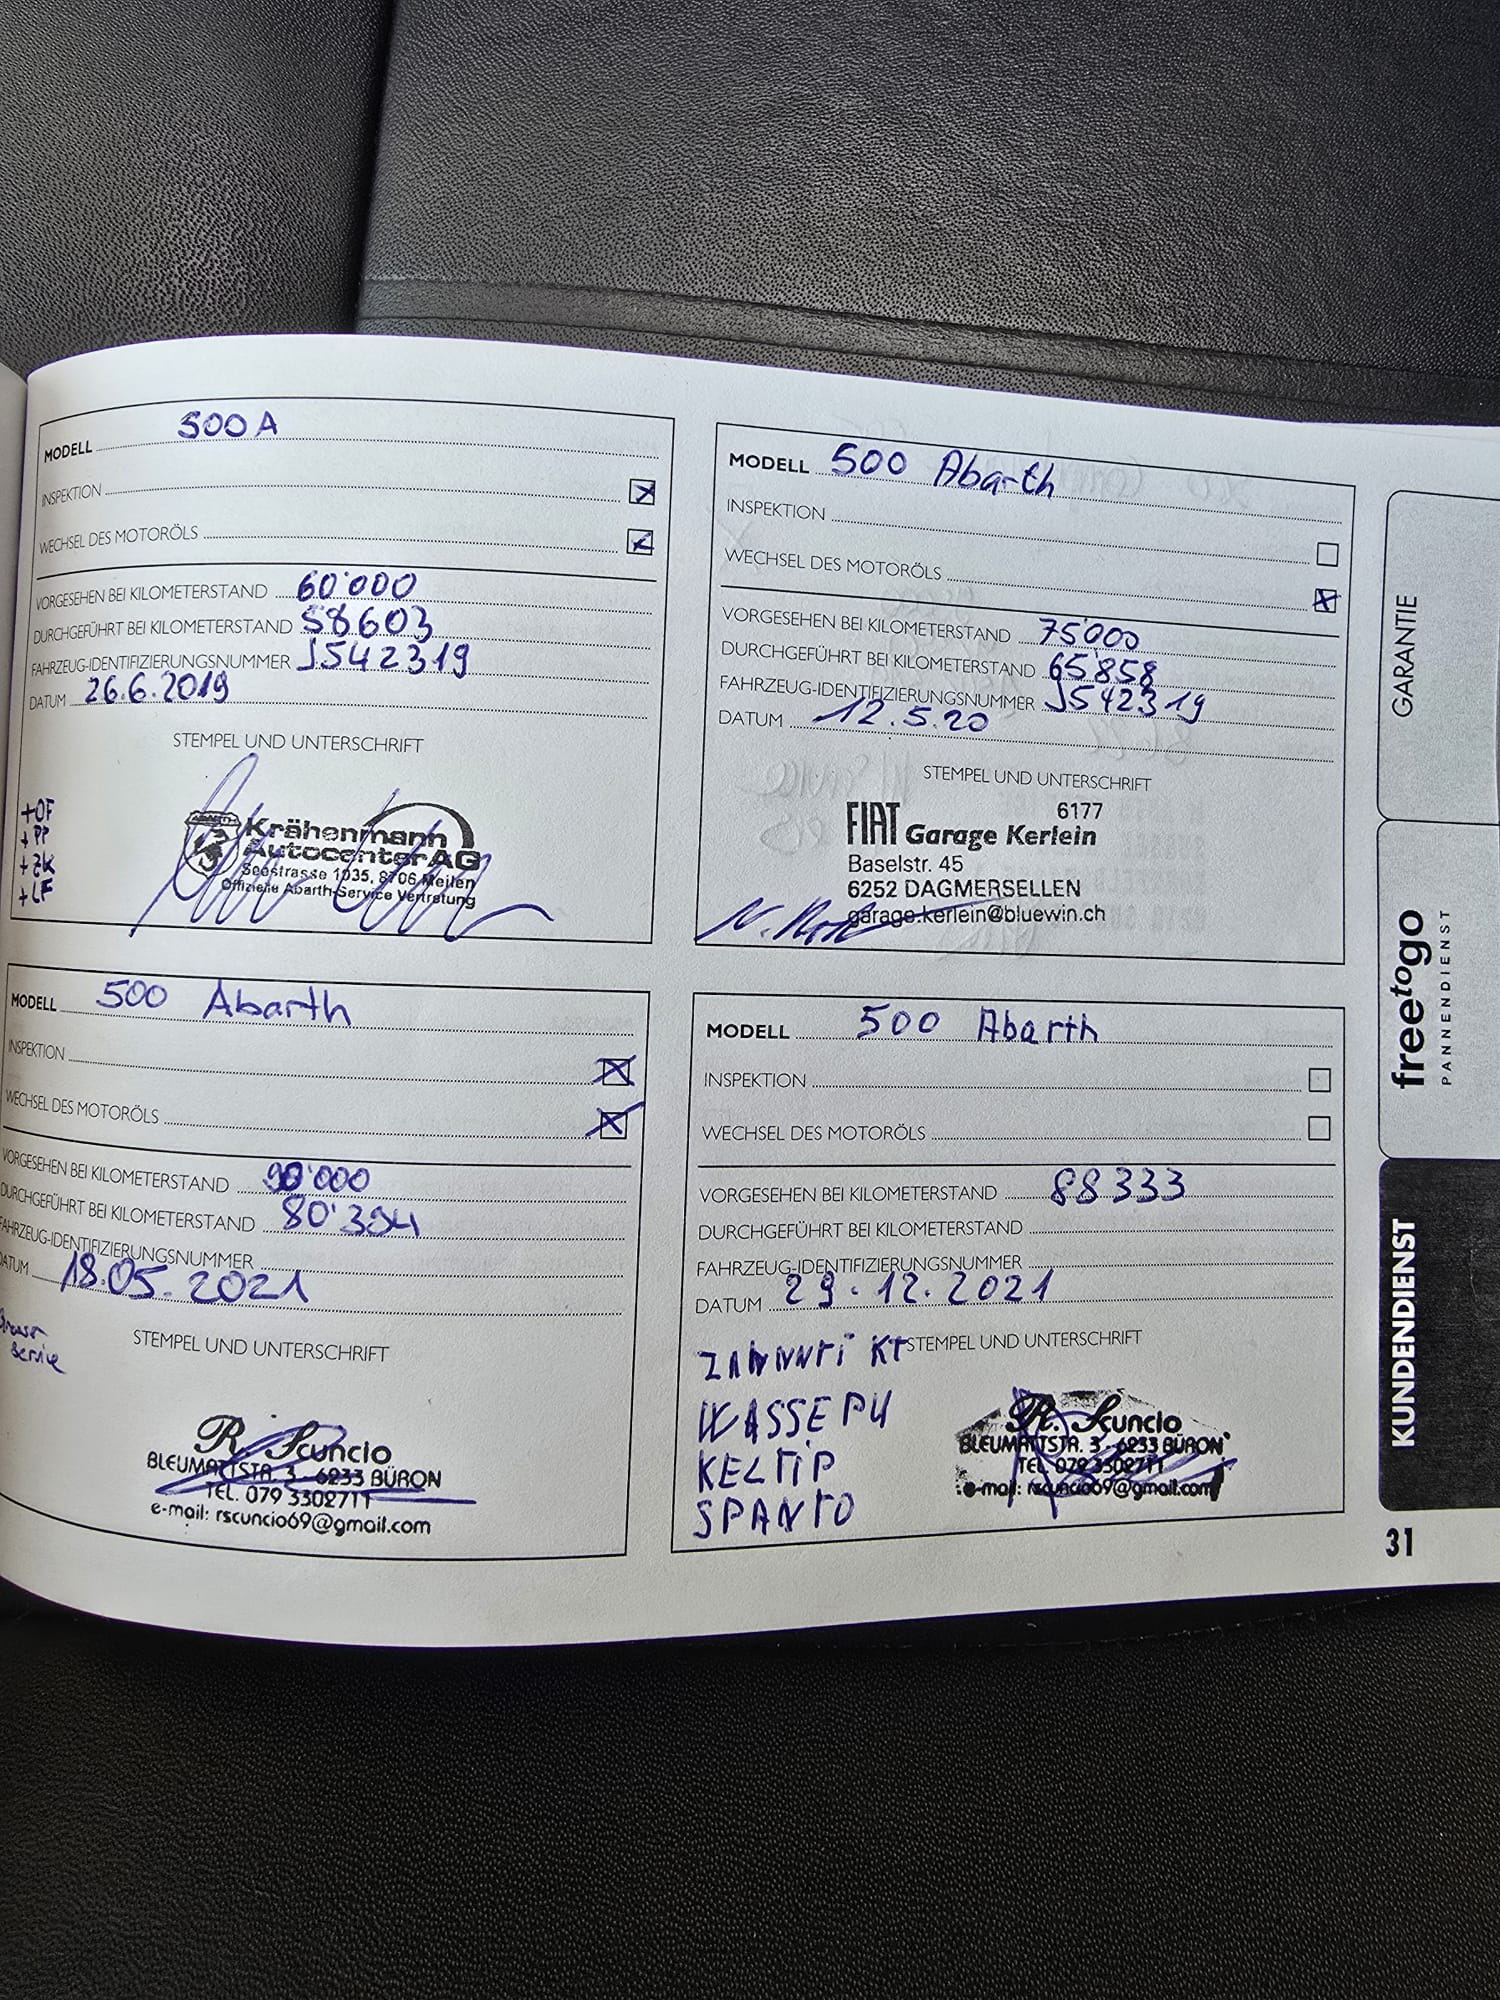 MODELL 500 A
INSPEKTION
WECHSEL DES MOTORÖLS
VORGESEHEN BEI KILOMETERSTAND 60'000
DURCHGEFÜHRT BEI KILOMETERSTAND 58603
FAHRZEUG-IDENTIFIZIERUNGSNUMMER J542319
DATUM 26.6.2019
STEMPEL UND UNTERSCHRIFT
+OF
+PP
+ZK
+LF
ABARTH
Krähenmann
Autocenter AG
Seestrasse 1035, 8706 Meilen
Offizielle Abarth-Service Vertretung
MODELL 500 Abarth
INSPEKTION
WECHSEL DES MOTORÖLS
VORGESEHEN BEI KILOMETERSTAND 75'000
DURCHGEFÜHRT BEI KILOMETERSTAND 65'858
FAHRZEUG-IDENTIFIZIERUNGSNUMMER J542319
DATUM 12.5.20
STEMPEL UND UNTERSCHRIFT
6177
FIAT Garage Kerlein
Baselstr. 45
6252 DAGMERSELLEN
garage.kerlein@bluewin.ch
MODELL 500 Abarth
INSPEKTION
WECHSEL DES MOTORÖLS
VORGESEHEN BEI KILOMETERSTAND 90'000
DURCHGEFÜHRT BEI KILOMETERSTAND 80'304
FAHRZEUG-IDENTIFIZIERUNGSNUMMER
DATUM 18.05.2021
STEMPEL UND UNTERSCHRIFT
Service
R. Scuncio
BLEUMATTSTR. 3 - 6233 BÜRON
TEL. 079 3302711
e-mail: rscuncio69@gmail.com
MODELL 500 Abarth
INSPEKTION
WECHSEL DES MOTORÖLS
VORGESEHEN BEI KILOMETERSTAND 88333
DURCHGEFÜHRT BEI KILOMETERSTAND
FAHRZEUG-IDENTIFIZIERUNGSNUMMER
DATUM 29.12.2021
STEMPEL UND UNTERSCHRIFT
WASSEPU
KELTIP
SPANTO
R. Scuncio
BLEUMATTSTR. 3 - 6233 BÜRON
TEL. 079 3302711
e-mail: rscuncio69@gmail.com
GARANTIE
freetogo
PANNENDIENST
KUNDENDIENST
31